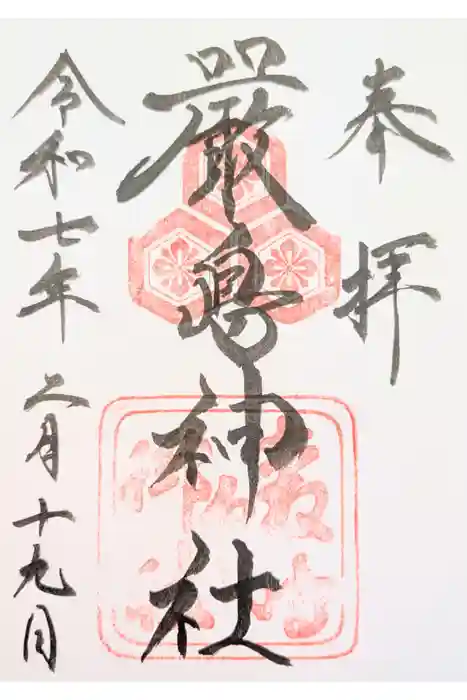 奉拝
嚴島神社
令和七年二月十九日